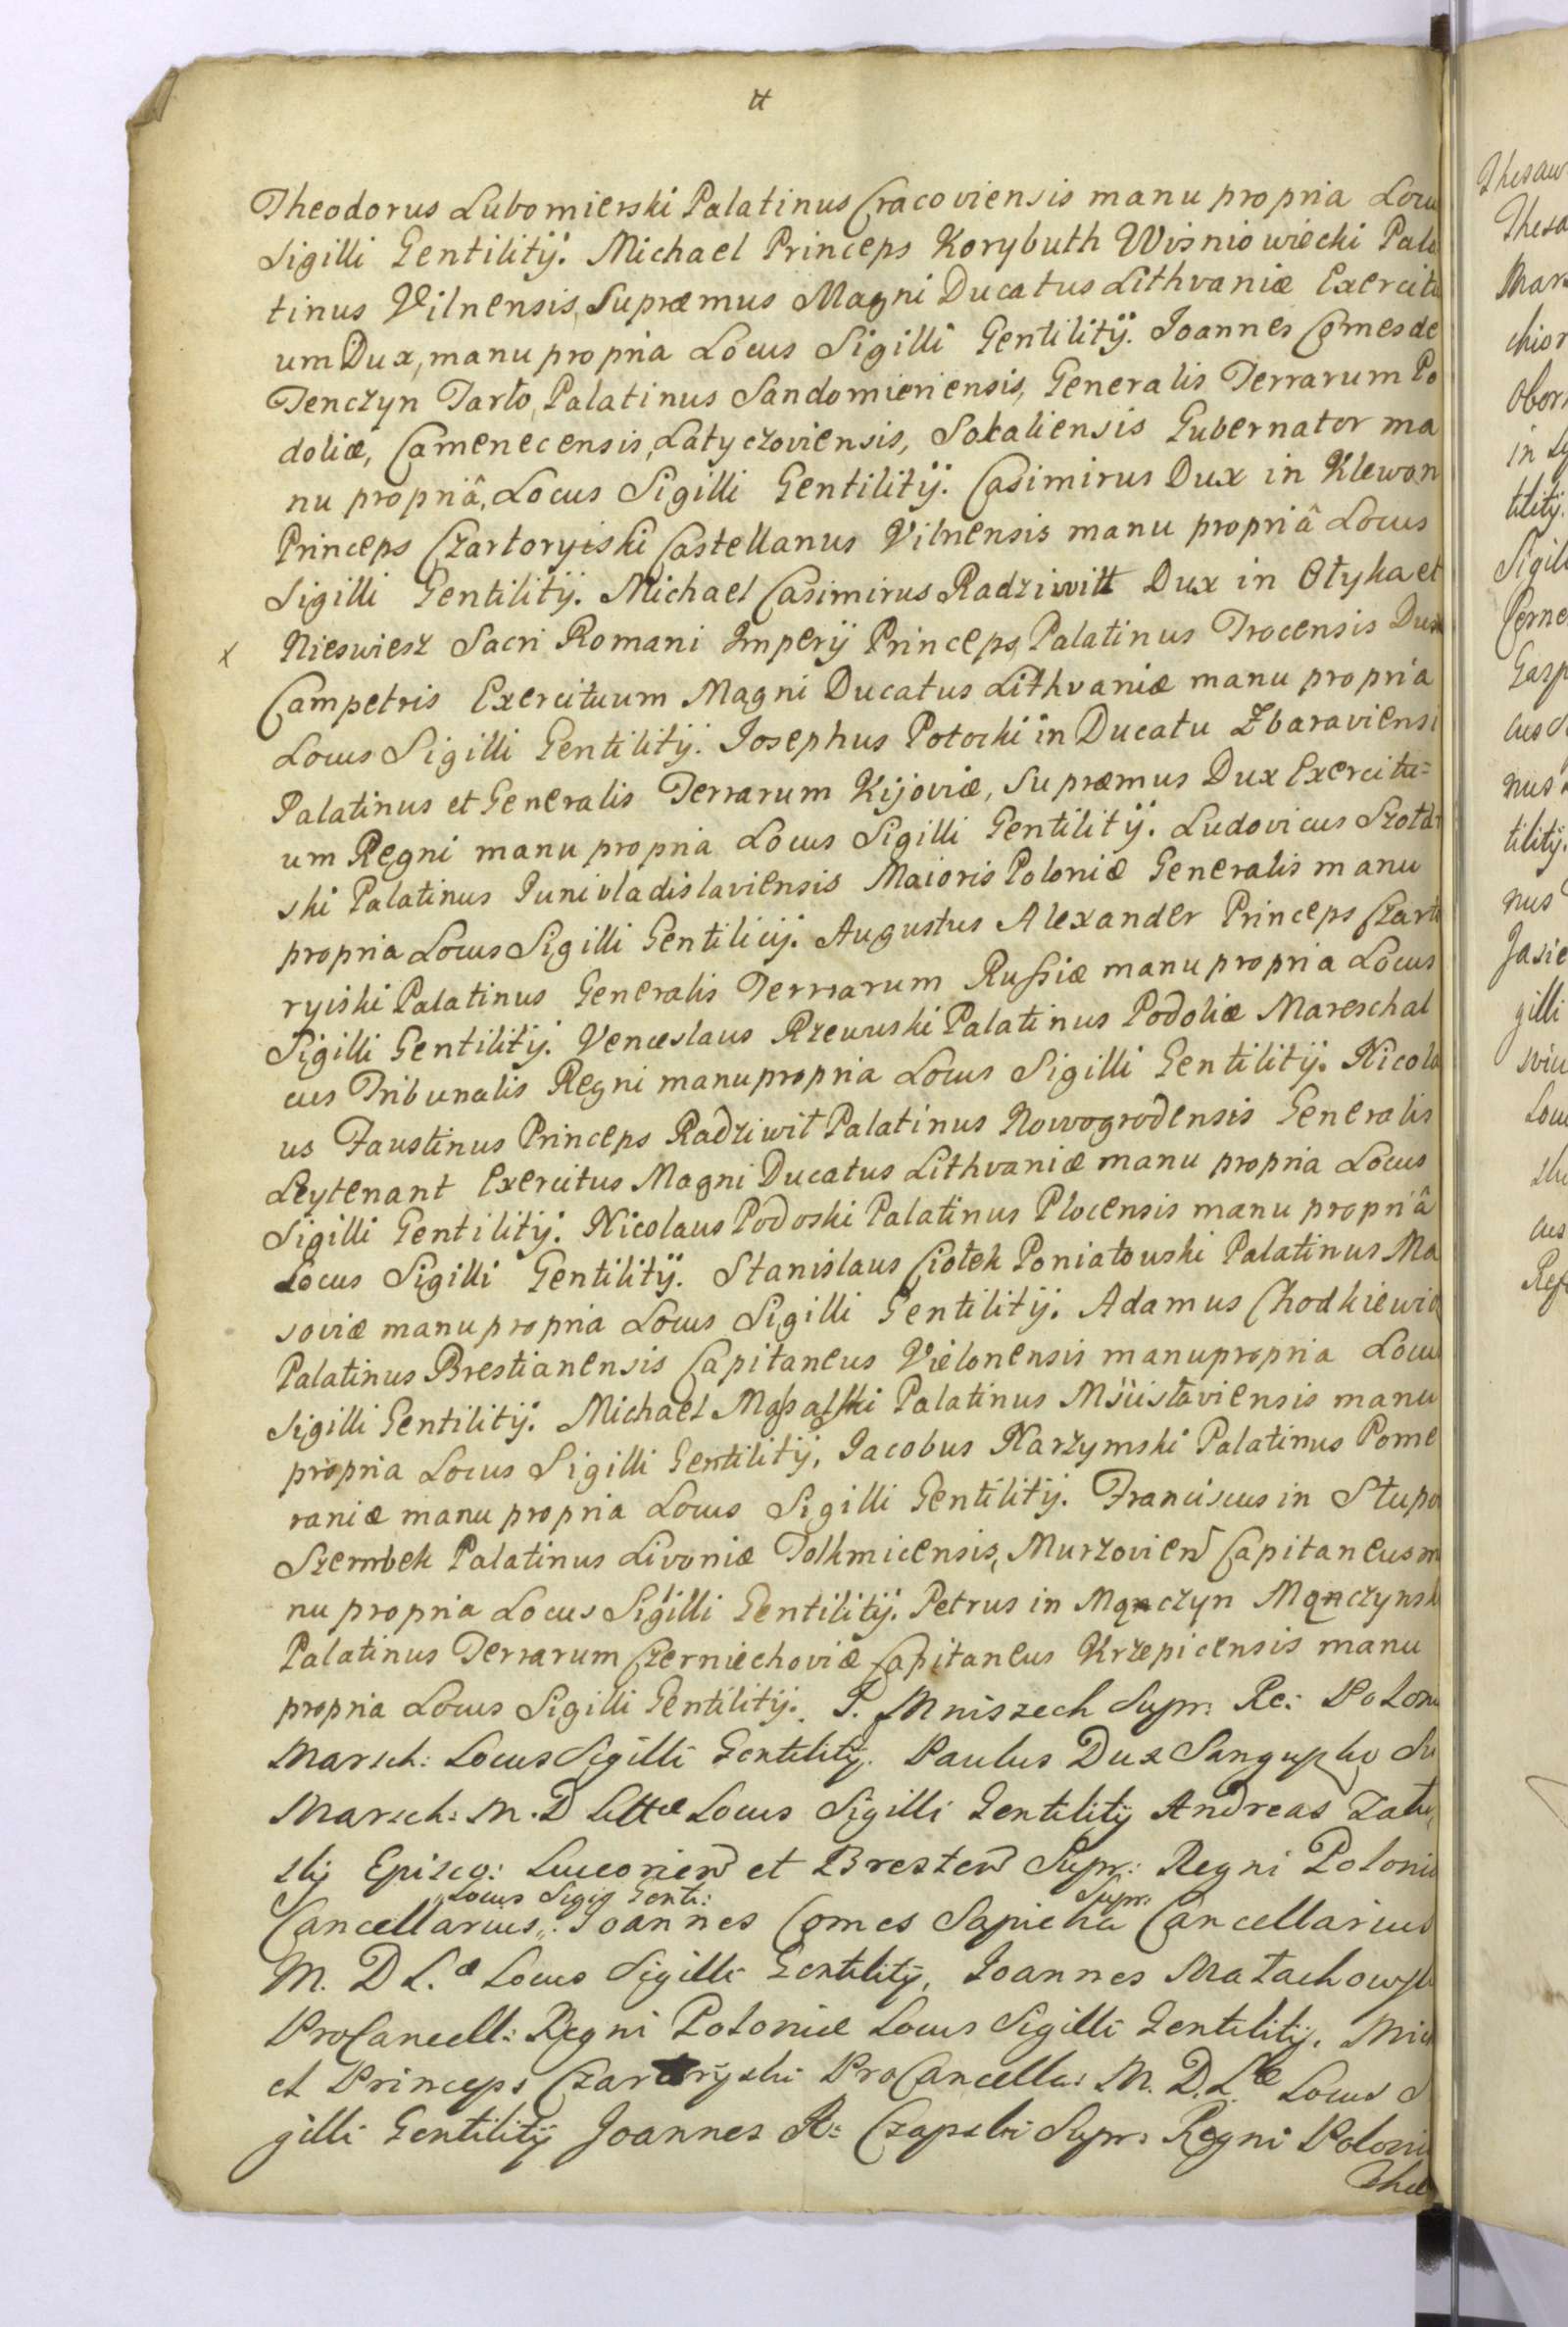 Theodorus Lubomierski Palatinus Cracoviensis manu propria Locu
Sigilli Gentilitij. Michael Princeps Korybuth Wisniowiecki Pala
tinus Vilnensis, Supræmus Magni Ducatus Lithvaniæ Exercitu
um Dux, manu propria Locus Sigilli Gentilitij. Joannes Comes de
Tenczyn Tarło, Palatinus Sandomiriensis, Generalis Terrarum Po
doliæ, Camenecensis, Latyczoviensis, Sokaliensis Gubernator ma
nu propriâ, Locus Sigilli Gentilitij. Casimirus Dux in Klewan
Princeps Czartoryiski Castellanus Vilnensis manu propriâ Locus
Sigilli Gentilitij. Michael Casimirus Radziwiłł Dux in Ołyka et
x Nieswiesz Sacri Romani Imperij Princeps, Palatinus Trocensis Dux
Campetris Exercituum Magni Ducatus Lithvaniæ manu propria
Locus Sigilli Gentilitij. Josephus Potocki in Ducatu Zbaraviensi
Palatinus et Generalis Terrarum Kijoviæ, Supræmus Dux Exercitu=
um Regni manu propria Locus Sigilli Gentilitij. Ludovicus Szołdr
ski Palatinus Junivladislaviensis Maioris Poloniæ Generalis manu
propria Locus Sigilli Gentilicij. Augustus Alexander Princeps Czarto
ryiski Palatinus Generalis Terrarum Russiæ manu propria Locus
Sigilli Gentilitij. Venceslaus Rzewuski Palatinus Podoliæ Mareschal
cus Tribunalis Regni manu propria Locus Sigilli Gentilitij. Nicola
us Faustinus Princeps Radziwił Palatinus Nowogrodensis Generalis
Leytenant Exercitus Magni Ducatus Lithvaniæ manu propria Locus
Sigilli Gentilitij. Nicolaus Podoski Palatinus Plocensis manu propriâ
Locus Sigilli Gentilitij. Stanislaus Ciołek Poniatouski Palatinus Ma
soviæ manu propria Locus Sigilli Gentilitij. Adamus Chodkiewic
Palatinus Brestianensis Capitaneus Vielonensis manu propria Locu
Sigilli Gentilitij. Michael Massalski Palatinus Mscislaviensis manu
propria Locus Sigilli Gentilitij, Jacobus Narzymski Palatinus Pome
raniæ manu propria Locus Sigilli Gentilitij. Franciscus in Słupo
Szembek Palatinus Livoniæ Tolkmicensis, Murzovien Capitaneus m
nu propria Locus Sigilli Gentilitij. Petrus in Mąnczyn Mąnczynsk
Palatinus Terrarum Czerniechoviæ Capitaneus Krzepicensis manu
propria Locus Sigilli Gentilitij. J. Mniszech Supr: Re: Poloni
Marsch: Locus Sigilli Gentilitij. Paulus Dux Sanguszko Su
Marsch: M. D Littæ Locus Sigilli Gentilitij Andreas Zału
skij Episco: Luceorien et Bresten Supr: Regni Poloniæ
Locus Sigij Genti: Supr:
Cancellarius,,: Joannes Comes Sapieha Cancellarius
M. D L.æ Locus Sigilli Gentilitij, Joannes Małachowsk
ProCancell: Regni Poloniæ Locus Sigilli Gentilitij. Mich
el Princeps Czartoryski ProCancella: M. D. L.æ Locus S
gilli Gentilitij Joannes A: Czapski Supr: Regni Poloni
The